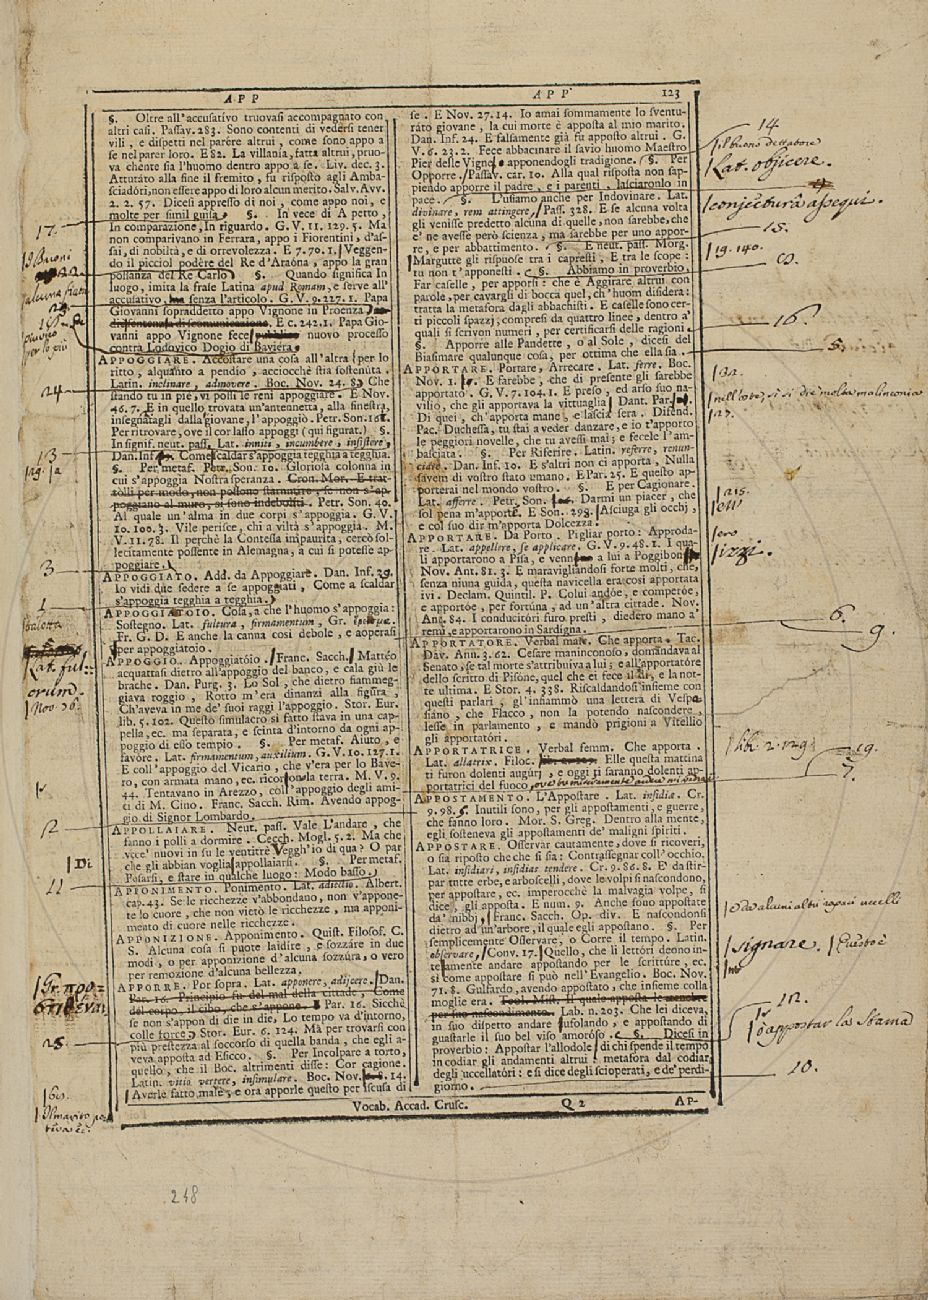 APP
APP
123
§. Oltre all'accusativo truovasi accompagnato con
altri casi. Passav. 283. Sono contenti di vedersi tener
vili, e dispetti nel parère altrui, come sono appo a
se nel parer loro. E 82. La villania, fatta altrui, pruo-
va chente sia l'huomo dentro appo a se. Liv. dec. 3.
Attutato alla fine il fremito, fu risposto agli Amba-
sciadóri, non essere appo di loro alcun merito. Salv. Avv.
2. 2. 57. Dicesi appresso di noi, come appo noi, e
molte per simil guisa. §. In vece di A petto,
In comparazione, In riguardo. G. V. 11. 129. 5. Ma
non comparivano in Ferrara, appo i Fiorentini, d'as-
sai, di nobiltà, e di orrevolezza. E 7. 70. 1. Veggen-
do il picciol podère del Re d'Araóna, appo la gran
possanza del Re Carlo. §. Quando significa In
luogo, imita la frase Latina apud Romam, e serve all'
accusativo, senza l'articolo. G. V. 9. 227. 1. Papa
Giovanni sopraddetto appo Vignone in Proenza
di sentenza di scomunicazione. E c. 242. 1. Papa Gio-
vanni appo Vignone fece nuovo processo
contra Lodovico Dogio di Baviera.
APPOGGIARE. Accostare una cosa all'altra per lo
ritto, alquanto a pendío, acciocchè stia sostenuta.
Latin. inclinare, admovere. Boc. Nov. 24. 8. Che
stando tu in piè, vi possi le reni appoggiare. E Nov.
46. 7. E in quello trovata un'antennetta, alla finestra,
insegnatagli dalla giovane, l'appoggiò. Petr. Son. 16.
Per ritrovare, ove il cor lasso appoggi (qui figurat.) §.
In signif. neut. pass. Lat. inniti, incumbere, insistere,
Dan. Inf. Come scaldar s'appoggia tegghia a tegghia.
§. Per metaf. Petr. Son. 10. Gloriosa colonna in
cui s'appoggia Nostra speranza. Cron. Mor. E trat-
tólli per modo, non possono starnutire, se non s'ap-
poggiano al muro, sì sono indeboliti. Petr. Son. 40.
Al quale un'alma in due corpi s'appoggia. G. V.
10. 100. 3. Vile perisce, chi a viltà s'appoggia. M.
V. 11. 78. Il perchè la Contessa impaurita, cercò sol-
lecitamente possente in Alemagna, a cui si potesse ap-
poggiare.
APPOGGIATO. Add. da Appoggiare. Dan. Inf. 29.
Io vidi due sedere a se appoggiati, Come a scaldar
s'appoggia tegghia a tegghia.
APPOGGIATOIO. Cosa, a che l'huomo s'appoggia:
Sostegno. Lat. fultura, firmamentum, Gr.
Fr. G. D. E anche la canna così debole, e aoperasi
per appoggiatoio.
APPOGGIO. Appoggiatóio. Franc. Sacch. Mattéo
acquattasi dietro all'appoggio del banco, e cala giù le
brache. Dan. Purg. 3. Lo Sol, che dietro fiammeg-
giava roggio, Rotto m'era dinanzi alla figúra,
Ch'aveva in me de' suoi raggi l'appoggio. Stor. Eur.
lib. 5. 102. Questo simulacro sì fatto stava in una cap-
pella, ec. ma separata, e scinta d'intorno da ogni ap-
poggio di esso tempio. §. Per metaf. Aiuto, e
favóre. Lat. firmamentum, auxilium. G. V. 10. 127. 1.
E coll'appoggio del Vicario, che v'era per lo Bave-
ro, con armata mano, ec. ricorson la terra. M. V. 9.
44. Tentavano in Arezzo, coll'appoggio degli ami-
ci di M. Cino. Franc. Sacch. Rim. Avendo appog-
gio di Signor Lombardo.
APPOLLAIARE. Neut. pass. Vale L'andare, che
fanno i polli a dormire. Cecch. Mogl. 5. 2. Ma che
vcce' nuovi in su le ventitrè Vegghio di qua? O par
che gli abbian voglia appollaiarsi. §. Per metaf.
Posarsi, e stare in qualche luogo: Modo basso.
APPONIMENTO. Ponimento. Lat. adiectio. Albert.
cap. 43. Se le ricchezze v'abbondano, non v'appone-
te lo cuore, che non vietò le ricchezze, ma apponi-
mento di cuore nelle ricchezze.
APPONIZIONE. Apponimento. Quist. Filosof. C.
S. Alcuna cosa si puote laidire, e sozzáre in due
modi, o per apponizione d'alcuna sozzúra, o vero
per remozione d'alcuna bellezza.
APPORRE. Por sopra. Lat. apponere, adiicere. Dan.
Par. 16. Principio fu del mal della cittade, Come
del corpo, il cibo, che s'appone. Par. 16. Sicchè
se non s'appon di die in die, Lo tempo va d'intorno,
colle force. Stor. Eur. 6. 124. Mà per trovarsi con
più prestezza al soccorso di quella banda, che egli a-
veva apposta ad Esicco. §. Per Incolpare a torto,
quello, che il Boc. altrimenti disse: Cor cagione.
Latin. vitio vertere, insimulare. Boc. Nov. 8. 14.
Averle fatto male, e ora apporle questo per iscusa di
se. E Nov. 27. 14. Io amai sommamente lo sventu-
ráto giovane, la cui morte è apposta al mio marito.
Dan. Inf. 24. E falsamente già fu apposto altrui. G.
V. 6. 23. 2. Fece abbacinare il savio huomo Maestro
Pier delle Vigne, apponendogli tradigione. §. Per
Opporre. Passav. car. 10. Alla qual risposta non sap-
piendo apporre il padre, e i parenti, lasciaronlo in
pace. §. L'usiamo anche per Indovinare. Lat.
divinare, rem attingere. Pass. 328. E se alcuna volta
gli venisse predetto alcuna di quelle, non sarebbe, che
e' ne avesse però scienza, ma sarebbe per uno appor-
re, e per abbattimento. §. E neut. pass. Morg.
Margutte gli rispuose tra i capresti, E tra le scope:
tu non t'apponesti. §. Abbiamo in proverbio,
Far caselle, per apporsi: che è Aggirare altrui con
parole, per cavargli di bocca quel, ch'huom disidera:
tratta la metafora dagli abbachisti. E caselle sono cer-
ti piccoli spazzj, compresi da quattro linee, dentro a'
quali si scrivon numeri, per certificarsi delle ragioni.
§. Apporre alle Pandette, o al Sole, dicesi del
Biasimare qualunque cosa, per ottima che ella sia.
APPORTARE. Portare, Arrecare. Lat. ferre. Boc.
Nov. 1. E farebbe, che di presente gli sarebbe
apportato. G. V. 7. 104. 1. E preso, ed arso suo na-
vilio, che gli apportava la vittuaglia. Dant. Par.
Di quei, ch'apporta mane, e lascia sera. Difend.
Pac. Duchessa, tu stai a veder danzare, e io t'apporto
le peggiori novelle, che tu avessi mai; e fecele l'am-
basciata. §. Per Riferire. Latin. referre, renun-
ciare. Dan. Inf. 10. E s'altri non ci apporta, Nulla
savem di vostro stato umano. E Par. 25. E questo ap-
porterai nel mondo vostro. §. E per Cagionare.
Lat. afferre. Petr. Son. Darmi un piacer, che
sol pena m'apporte. E Son. 298. Asciuga gli occhj,
e col suo dir m'apporta Dolcezza.
APPORTARE. Da Porto. Pigliar porto: Approda-
re. Lat. appellere, se applicare. G. V. 9. 48. 1. I qua-
li apportarono a Pisa, e venn a lui a Poggibon
Nov. Ant. 81. 3. E maravigliandosi forte molti, che,
senza niuna guida, questa navicella era così apportata
ivi. Declam. Quintil. P. Colui andóe, e comperóe,
e apportóe, per fortúna, ad un'altra cittade. Nov.
Ant. 84. I conducitóri furo presti, diedero mano a'
remi, e apportarono in Sardigna.
APPORTATORE. Verbal masc. Che apporta. Tac.
Dav. Ann. 3. 62. Cesare maninconoso, domandava al
Senato, se tal morte s'attribuiva a lui; e all'apportatóre
dello scritto di Pisóne, quel che ei fece il dì, e la not-
te ultima. E Stor. 4. 338. Riscaldandosi'nsieme con
questi parlari, gl'infiammò una lettera di Vespa-
siáno, che Flacco, non la potendo nascondere,
lesse in parlamento, e mandò prigioni a Vitellio
gli apportatóri.
APPORTATRICE. Verbal femm. Che apporta.
Lat. allatrix. Filoc. Elle questa mattina
ti furon dolenti augurj, e oggi ti saranno dolenti ap-
portatrici del fuoco,
APPOSTAMENTO. L'Appostare. Lat. insidiæ. Cr.
9. 98. 5. Inutili sono, per gli appostamenti, e guerre,
che fanno loro. Mor. S. Greg. Dentro alla mente,
egli sosteneva gli appostamenti de' maligni spiriti.
APPOSTARE. Osservar cautamente, dove si ricoveri,
o sia riposto che che si sia: Contrassegnar coll'occhio.
Lat. insidiari, insidias tendere. Cr. 9. 86. 8. E' da stir-
par tutte erbe, e arboscelli, dove le volpi si nascondono,
per appostare, ec. imperocchè la malvagia volpe, si
dice, gli apposta. E num. 9. Anche sono appostate
da' nibbj. Franc. Sacch. Op. div. E nascondonsi
dietro ad un'arbore, il quale egli appostano. §. Per
semplicemente Osservare, o Corre il tempo. Latin.
observare. Conv. 17. Quello, che li lettóri denno in-
telamente andare appostando per le scrittúre, ec.
sì come appostare si può nell'Evangelio. Boc. Nov.
71. 8. Gulfardo, avendo appostato, che insieme colla
moglie era. Tcol. Mist. Il quale apposta le tenebre
per suo nascondimento. Lab. n. 203. Che lei diceva,
in suo dispetto andare sufolando, e appostando di
guastarle il suo bel viso amoroso. §. Dicesi in
proverbio: Appostar l'allodole; di chi spende il tempo
in codiar gli andamenti altrui: metafora dal codiar,
degli'uccellatóri: e si dice degli scioperati, e de' perdi-
giorno.
Vocab. Accad. Crusc.
Q 2
AP-
17.
24
13
3
1
2
Di
11
28
14
il buono dettatore
Lat. objicere.
conjectura assequi.
15.
19. 140.
16.
5.
nell'ote, sì si diè molta malinconia
215.
izzi.
6.
9.
lib. 2. 129
19.
7.
o da alcuni altri rapaci uccelli
signare.
Questo è
12.
o appostar la Starna
10.
Lat. ful-
crum.
Nov. 36.
248